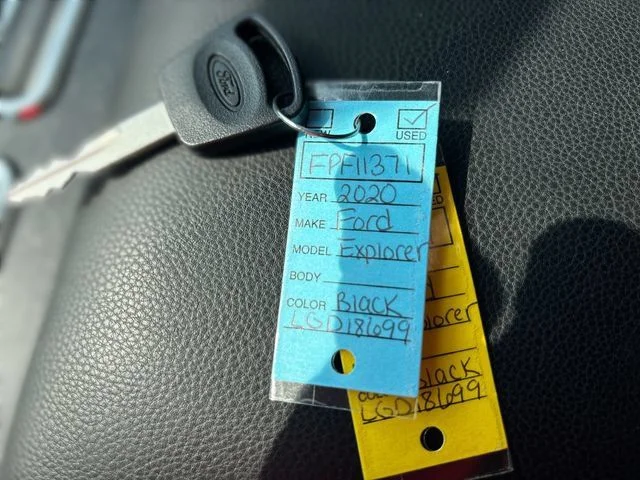 Ford
NEW
USED
FPF11371
YEAR 2020
MAKE Ford
MODEL Explorer
BODY
COLOR Black
LGD18699
Black
LGD18699